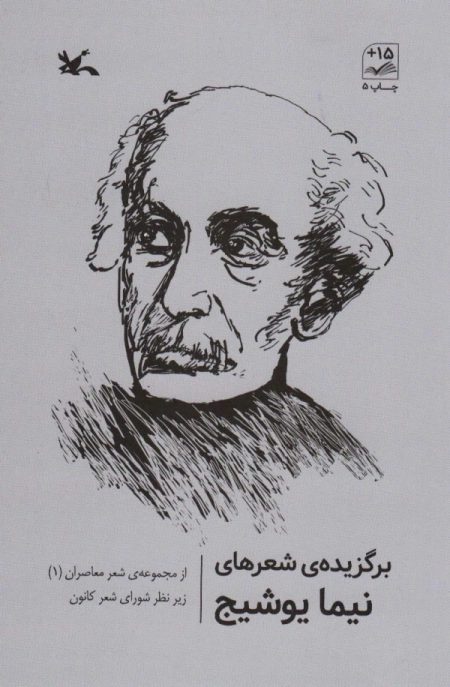 +۱۵
چاپ ۵
برگزیده‌ی شعرهای
نیما یوشیج
از مجموعه‌ی شعر معاصران (۱)
زیر نظر شورای شعر کانون